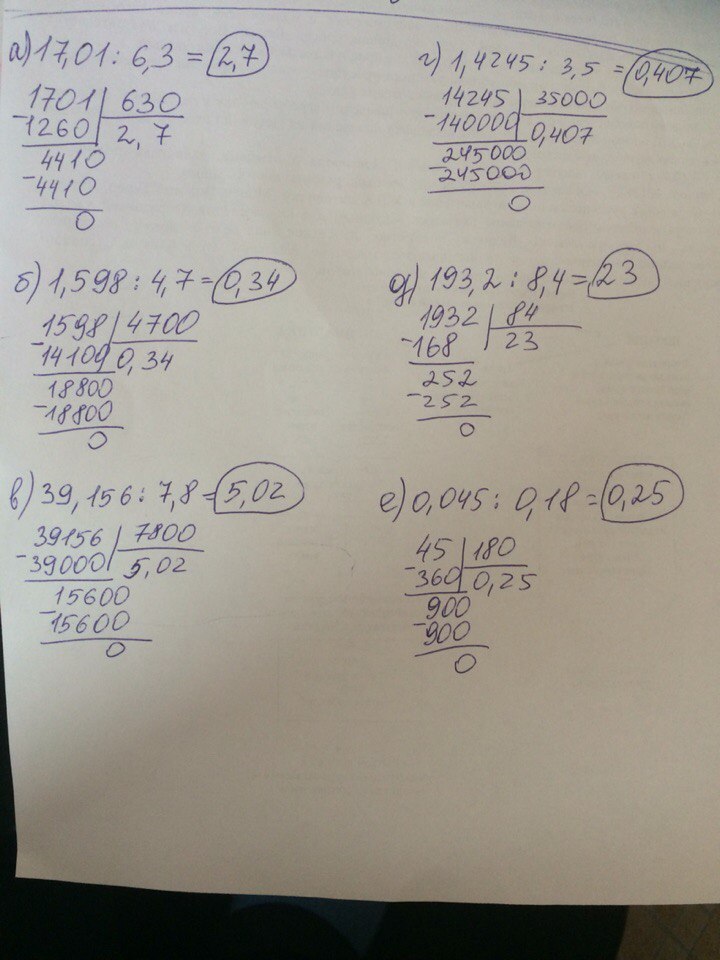 а) 17,01 : 6,3 = 2,7
1701 | 630
-1260 | 2,7
4410
-4410
0
б) 1,598 : 4,7 = 0,34
-1598 | 4700
14100 | 0,34
18800
-18800
0
в) 39,156 : 7,8 = 5,02
39156 | 7800
-39000 | 5,02
15600
-15600
0
г) 1,4245 : 3,5 = 0,407
14245 | 35000
-140000 | 0,407
245000
-245000
0
д) 193,2 : 8,4 = 23
1932 | 84
-168 | 23
252
-252
0
е) 0,045 : 0,18 = 0,25
-45 | 180
360 | 0,25
900
-900
0